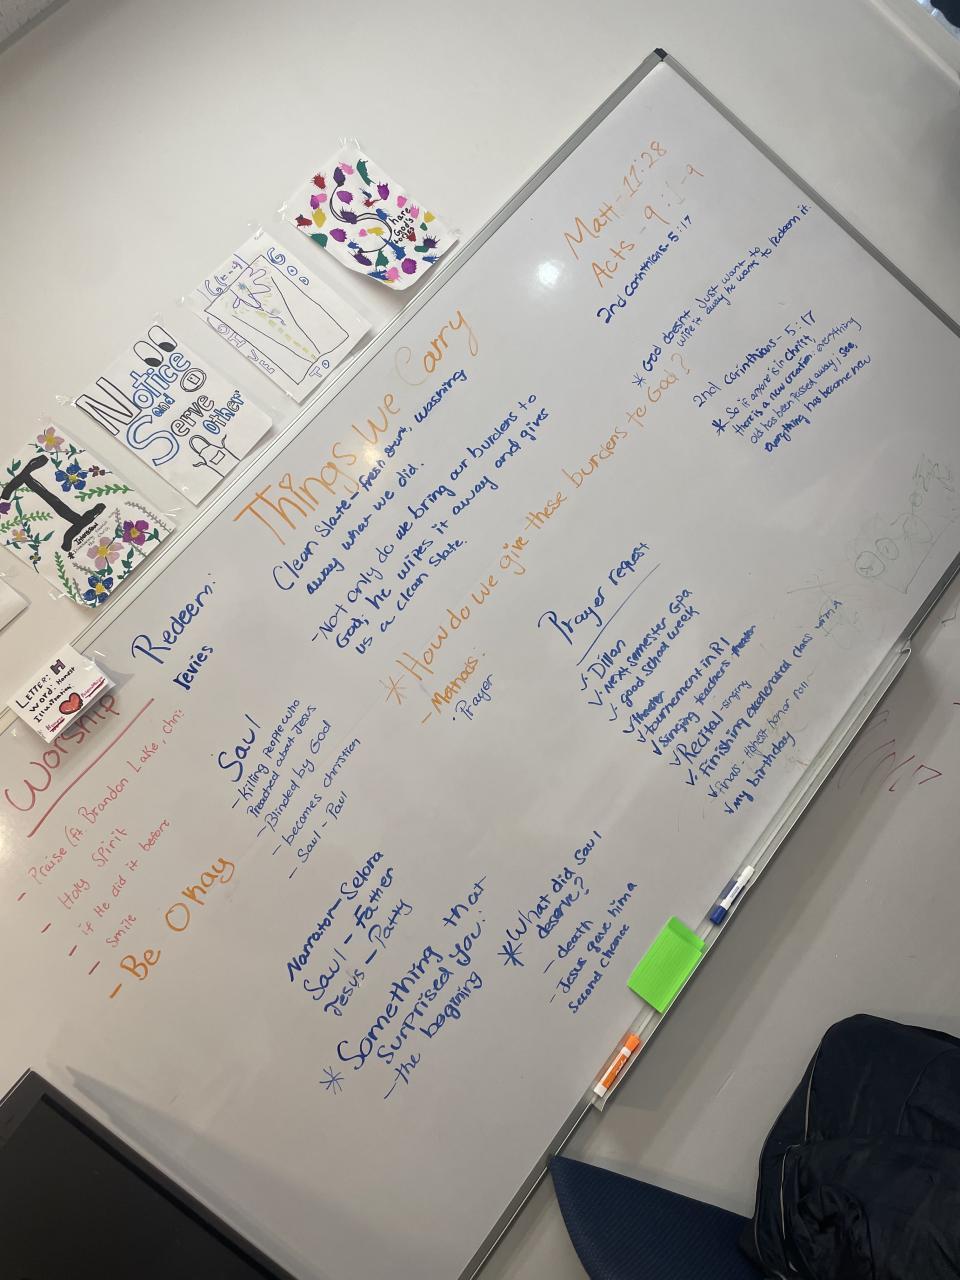 Share
God's
Stories
GOOD
Notice
and
Serve
other
I
LETTER: H
Word: Honest
Illustration:
Worship
- Praise (ft. Brandon Lake, chri
- Holy Spirit
- if He did it before
- Smile
- Be Okay
Redeem:
revies
Saul
- Killing people who
Preached about Jesus
- Blinded by God
- becomes christian
- Saul - Paul
Narrator - Selora
Saul - Father
Jesus - Patty
* Something that
surprised you:
- the begining
Things We Carry
Clean Slate - fresh start, washing
away what we did.
- Not only do we bring our burdens to
God, he wipes it away and gives
us a clean slate.
* How do we give these burdens to God?
- Methods:
· Prayer
* What did Saul
deserve?
- death
- Jesus gave him a
second chance
Matt - 11:28
Acts - 9:1-9
2nd corinthians - 5:17
* God doesnt Just want to
wipe it away he wants to redeem it.
2nd Corinthians - 5:17
* So if anyone is in Christ,
there is a new creation: everything
old has been passed away; see,
everything has become new
Prayer request
✓ Dillon
✓ Next semester Gpa
✓ good school week
✓ theater
✓ tournament in RI
✓ Singing teachers theater
✓ Recital - singing
✓ Finishing accelerated class
✓ Finals - Honest honor
✓ my birthday